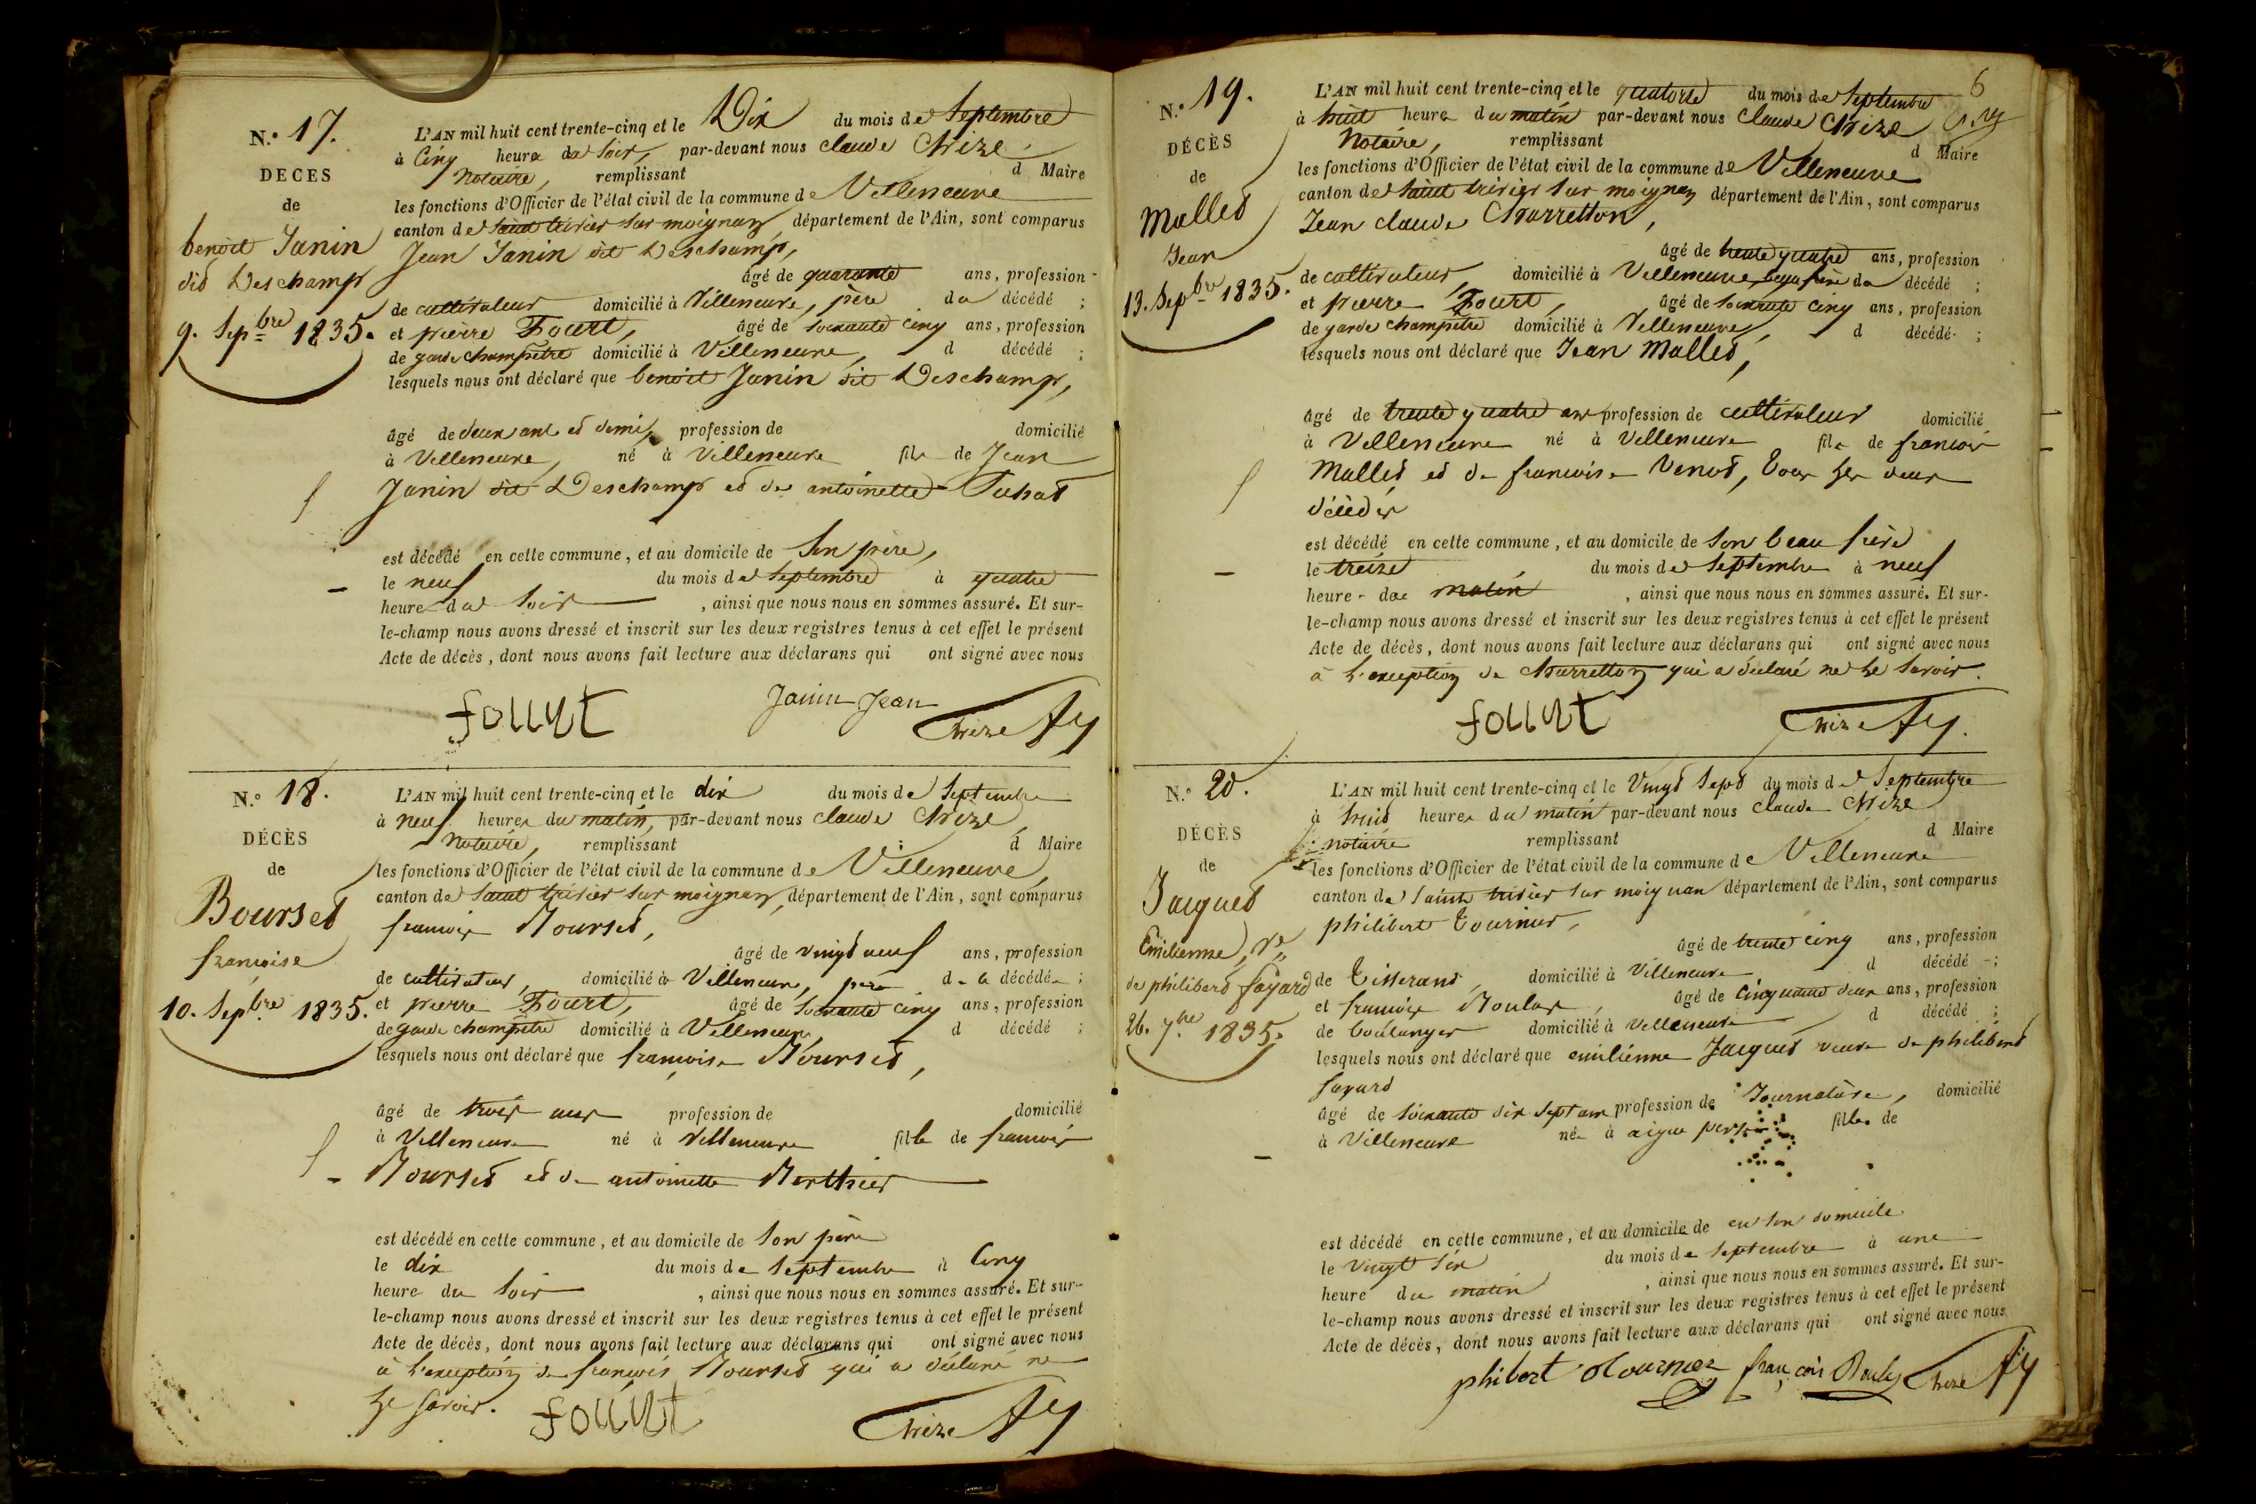 N.° 17.
DECES
de
benoit Janin
dit Deschamp
9. Sep.bre 1835.
L'AN mil huit cent trente-cinq et le Dix du mois de Septembre
à Cinq heure du Soir, par-devant nous claude Chize
Notaire, remplissant d Maire
les fonctions d'Officier de l'état civil de la commune de Villeneuve
canton de Saint trivier sur moignan, département de l'Ain, sont comparus
Jean Janin dit Deschamp,
âgé de quarante ans, profession
de cultivateur domicilié à Villeneuve, père du décédé ;
et pierre Fourt, âgé de soixante cinq ans, profession
de garde champêtre domicilié à Villeneuve, d décédé ;
lesquels nous ont déclaré que benoit Janin dit Deschamp,
âgé de deux ans et demi, profession de domicilié
à Villeneuve, né à Villeneuve fils de Jean
Janin dit Deschamp et de antoinette
est décédé en cette commune, et au domicile de Son père,
le neuf du mois de Septembre à quatre
heure du Soir, ainsi que nous nous en sommes assuré. Et sur-
le-champ nous avons dressé et inscrit sur les deux registres tenus à cet effet le présent
Acte de décès, dont nous avons fait lecture aux déclarans qui ont signé avec nous
Janin Jean
Chize
N.° 18.
DÉCÈS
de
Bourset
françoise
10. Sep.bre 1835.
L'AN mil huit cent trente-cinq et le dix du mois de Septembre
à neuf heure du matin, par-devant nous claude Chize,
Notaire, remplissant d Maire
les fonctions d'Officier de l'état civil de la commune de Villeneuve,
canton de Saint trivier sur moignan, département de l'Ain, sont comparus
françois Bourset,
âgé de vingt neuf ans, profession
de cultivateur, domicilié à Villeneuve, père de la décédée ;
et pierre Fourt, âgé de Soixante cinq ans, profession
de garde champêtre domicilié à Villeneuve, d décédé ;
lesquels nous ont déclaré que françoise Bourset,
âgé de trois ans profession de domicilié
à Villeneuve né à Villeneuve fille de françois
Bourset et de antoinette Berthier
est décédé en cette commune, et au domicile de Son père
le dix du mois de Septembre à Cinq
heure du Soir, ainsi que nous nous en sommes assuré. Et sur-
le-champ nous avons dressé et inscrit sur les deux registres tenus à cet effet le présent
Acte de décès, dont nous avons fait lecture aux déclarans qui ont signé avec nous
à l'exception de françois Bourset qui a déclaré ne
le Savoir.
Chize
6
N.° 19.
DÉCÈS
de
Mallet
Jean
13. Sep.bre 1835.
L'AN mil huit cent trente-cinq et le quatorze du mois de Septembre
à huit heure du matin par-devant nous claude Chize
Notaire, remplissant d Maire
les fonctions d'Officier de l'état civil de la commune de Villeneuve
canton de Saint trivier sur moignan département de l'Ain, sont comparus
Jean claude Charretton,
âgé de trente quatre ans, profession
de cultivateur, domicilié à Villeneuve beau frère du décédé ;
et pierre Fourt, âgé de soixante cinq ans, profession
de garde champêtre domicilié à Villeneuve, d décédé ;
lesquels nous ont déclaré que Jean Mallet,
âgé de trente quatre ans profession de cultivateur domicilié
à Villeneuve né à Villeneuve fils de françois
Mallet et de francoise Venot, tous les deux
décédés
est décédé en cette commune, et au domicile de Son beau frère
le treize du mois de Septembre à neuf
heure du matin, ainsi que nous nous en sommes assuré. Et sur-
le-champ nous avons dressé et inscrit sur les deux registres tenus à cet effet le présent
Acte de décès, dont nous avons fait lecture aux déclarans qui ont signé avec nous
à l'exception de Charretton qui a déclaré ne le Savoir.
Chize
N.° 20.
DÉCÈS
de
Jacquet
Emilienne, Ve
de philibert fayard
26. 7.bre 1835.
L'AN mil huit cent trente-cinq et le Vingt Sept du mois de Septembre
à huit heure du matin par-devant nous claude Chize
notaire remplissant d Maire
les fonctions d'Officier de l'état civil de la commune de Villeneuve
canton de Saint trivier sur moignan département de l'Ain, sont comparus
philibert Tournier,
âgé de trente cinq ans, profession
de Tisserand, domicilié à Villeneuve d décédé ;
et françois Boulay, âgé de Cinquante deux ans, profession
de boulanger domicilié à Villeneuve d décédé ;
lesquels nous ont déclaré que emilienne Jacquet veuve de philibert
fayard
âgé de soixante dix sept ans profession de Journalière, domicilié
à Villeneuve née à aigue perse fille de
est décédé en cette commune, et au domicile de en son domicile
le vingt six du mois de Septembre à une
heure du matin, ainsi que nous nous en sommes assuré. Et sur-
le-champ nous avons dressé et inscrit sur les deux registres tenus à cet effet le présent
Acte de décès, dont nous avons fait lecture aux déclarans qui ont signé avec nous
phibert tournier françois Chize